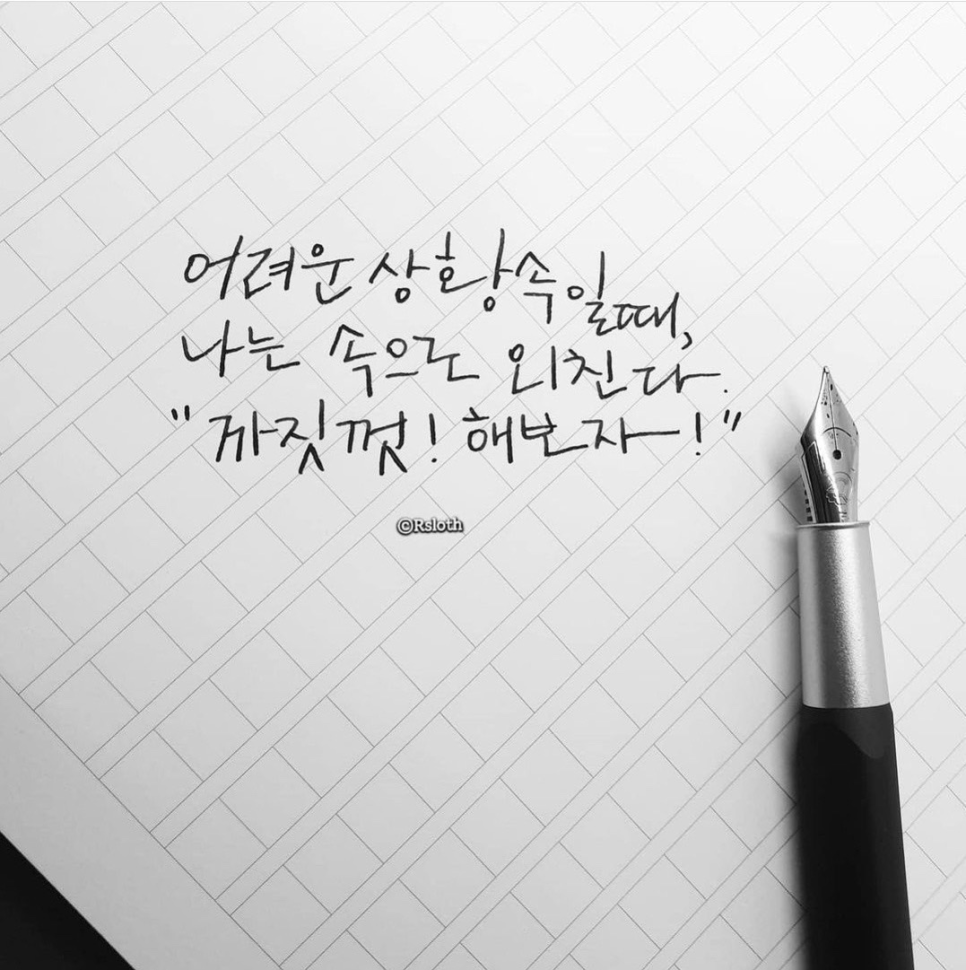 어려운 상황속일때,
나는 속으로 외친다.
"까짓껏! 해보자!"
©Rsloth